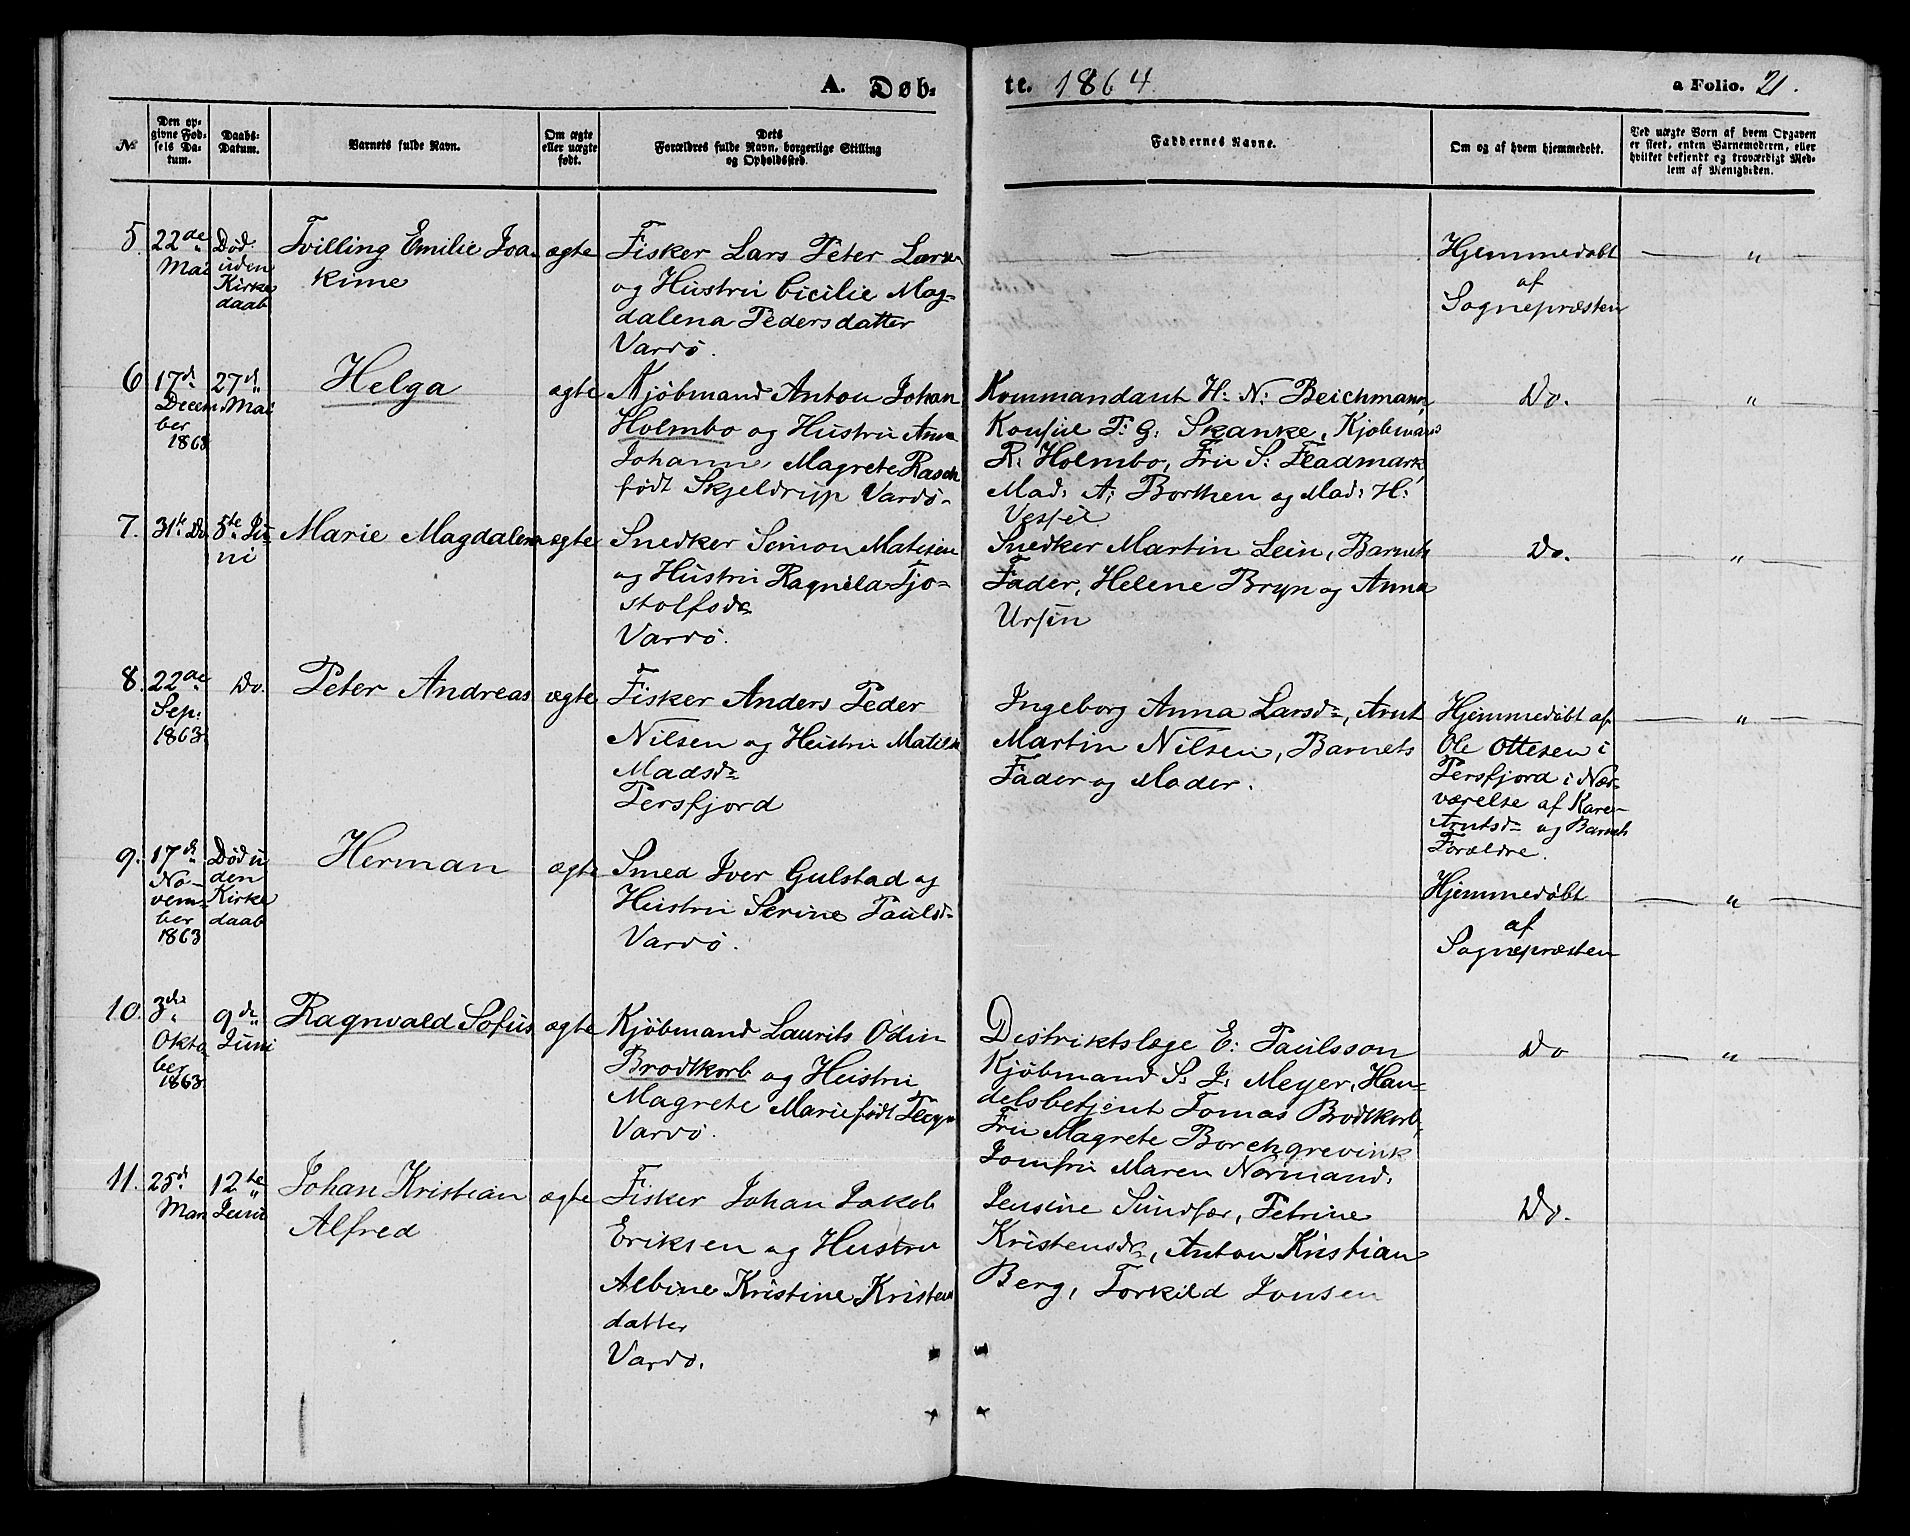 A. Døb-
te. 1864.
a Folio. 21.
№
Den op-
givne Fød-
sels Da-
tum.
Daabs-
Datum.
Barnets fulde Navn.
Om ægte
eller uægte
født.
Dets
Forældres fulde Navn, borgerlige Stilling
og Opholdssted.
Faddernes Navne.
Om og af hvem hjemmedøbt.
Ved uægte Born af hvem Opgaven
er skeet, enten Barnemoderen, eller
hvilket bekjendt og troværdigt Med-
lem af Menigheden.
5
22de
Mai
Død
uden
Kirke
daab
Tvilling Emilie Joa-
kime
ægte
Fisker Lars Peter Larsen
og Hustru Cicilie Mag-
dalena Pedersdatter
Vardö.
Hjemmedøbt
af
Sognepræsten
"
6
17de
Decem
ber
1863
27de
Mai
Helga
ægte
Kjöbmand Anton Johan
Holmbo og Hustru Anna
Johanne Magrete Rasch
født Skjeldrup Vardö.
Kommandant H: N: Beichmann,
Konsul F: G: Skanke, Kjøbmand
R: Holmbo, Fru S: Fladmark,
Mad: A: Borthen og Mad: H:
Vessel
Do.
"
7.
31te Do
5te Ju-
ni
Marie Magdalena
ægte
Snedker Simon Matisen
og Hustru Ragnila Tjo-
stolfsdr
Vardö.
Snedker Martin Lein, Barnets
Fader, Helene Bryn og Anna
Ursin
Do.
"
8.
22de
Sep:
1863
Do.
Peter Andreas
ægte
Fisker Anders Peder
Nilsen og Hustru Matilde
Madsdr
Persfjord
Ingeborg Anna Larsdr, Arnt
Martin Nilsen, Barnets
Fader og Moder.
Hjemmedøbt af
Ole Ottesen i
Persfjord i Nær-
værelse af Karen
Arntsdr og Barnets
Forældre.
"
9.
17de
No-
vem-
ber
1863
Død u
den
Kirke
daab
Herman
ægte
Smed Iver Gulstad og
Hustru Serine Paulsdr
Vardö.
Hjemmedøbt
af
Sognepræsten
"
10.
3die
Okto
ber
1863
9de
Juni
Ragnvald Sofus
ægte
Kjøbmand Laurits Odin
Brodtkorb og Hustru
Magrete Marie født
Vardö.
Distriktslæge E: Paulsson
Kjøbmand S. J: Meyer, Han-
delsbetjent Tomas Brodtkorb,
Fru Magrete Borchgrevink
Jomfru Maren Normand.
Do
"
11.
25de
Mars
12te
Juni
Johan Kristian
Alfred
ægte
Fisker Johan Jakob
Eriksen og Hustru
Albine Kristine Kristens
datter
Vardö.
Jensine Sundfær, Petrine
Kristensdr, Anton Kristian
Berg, Torkild Jonsen
Do.